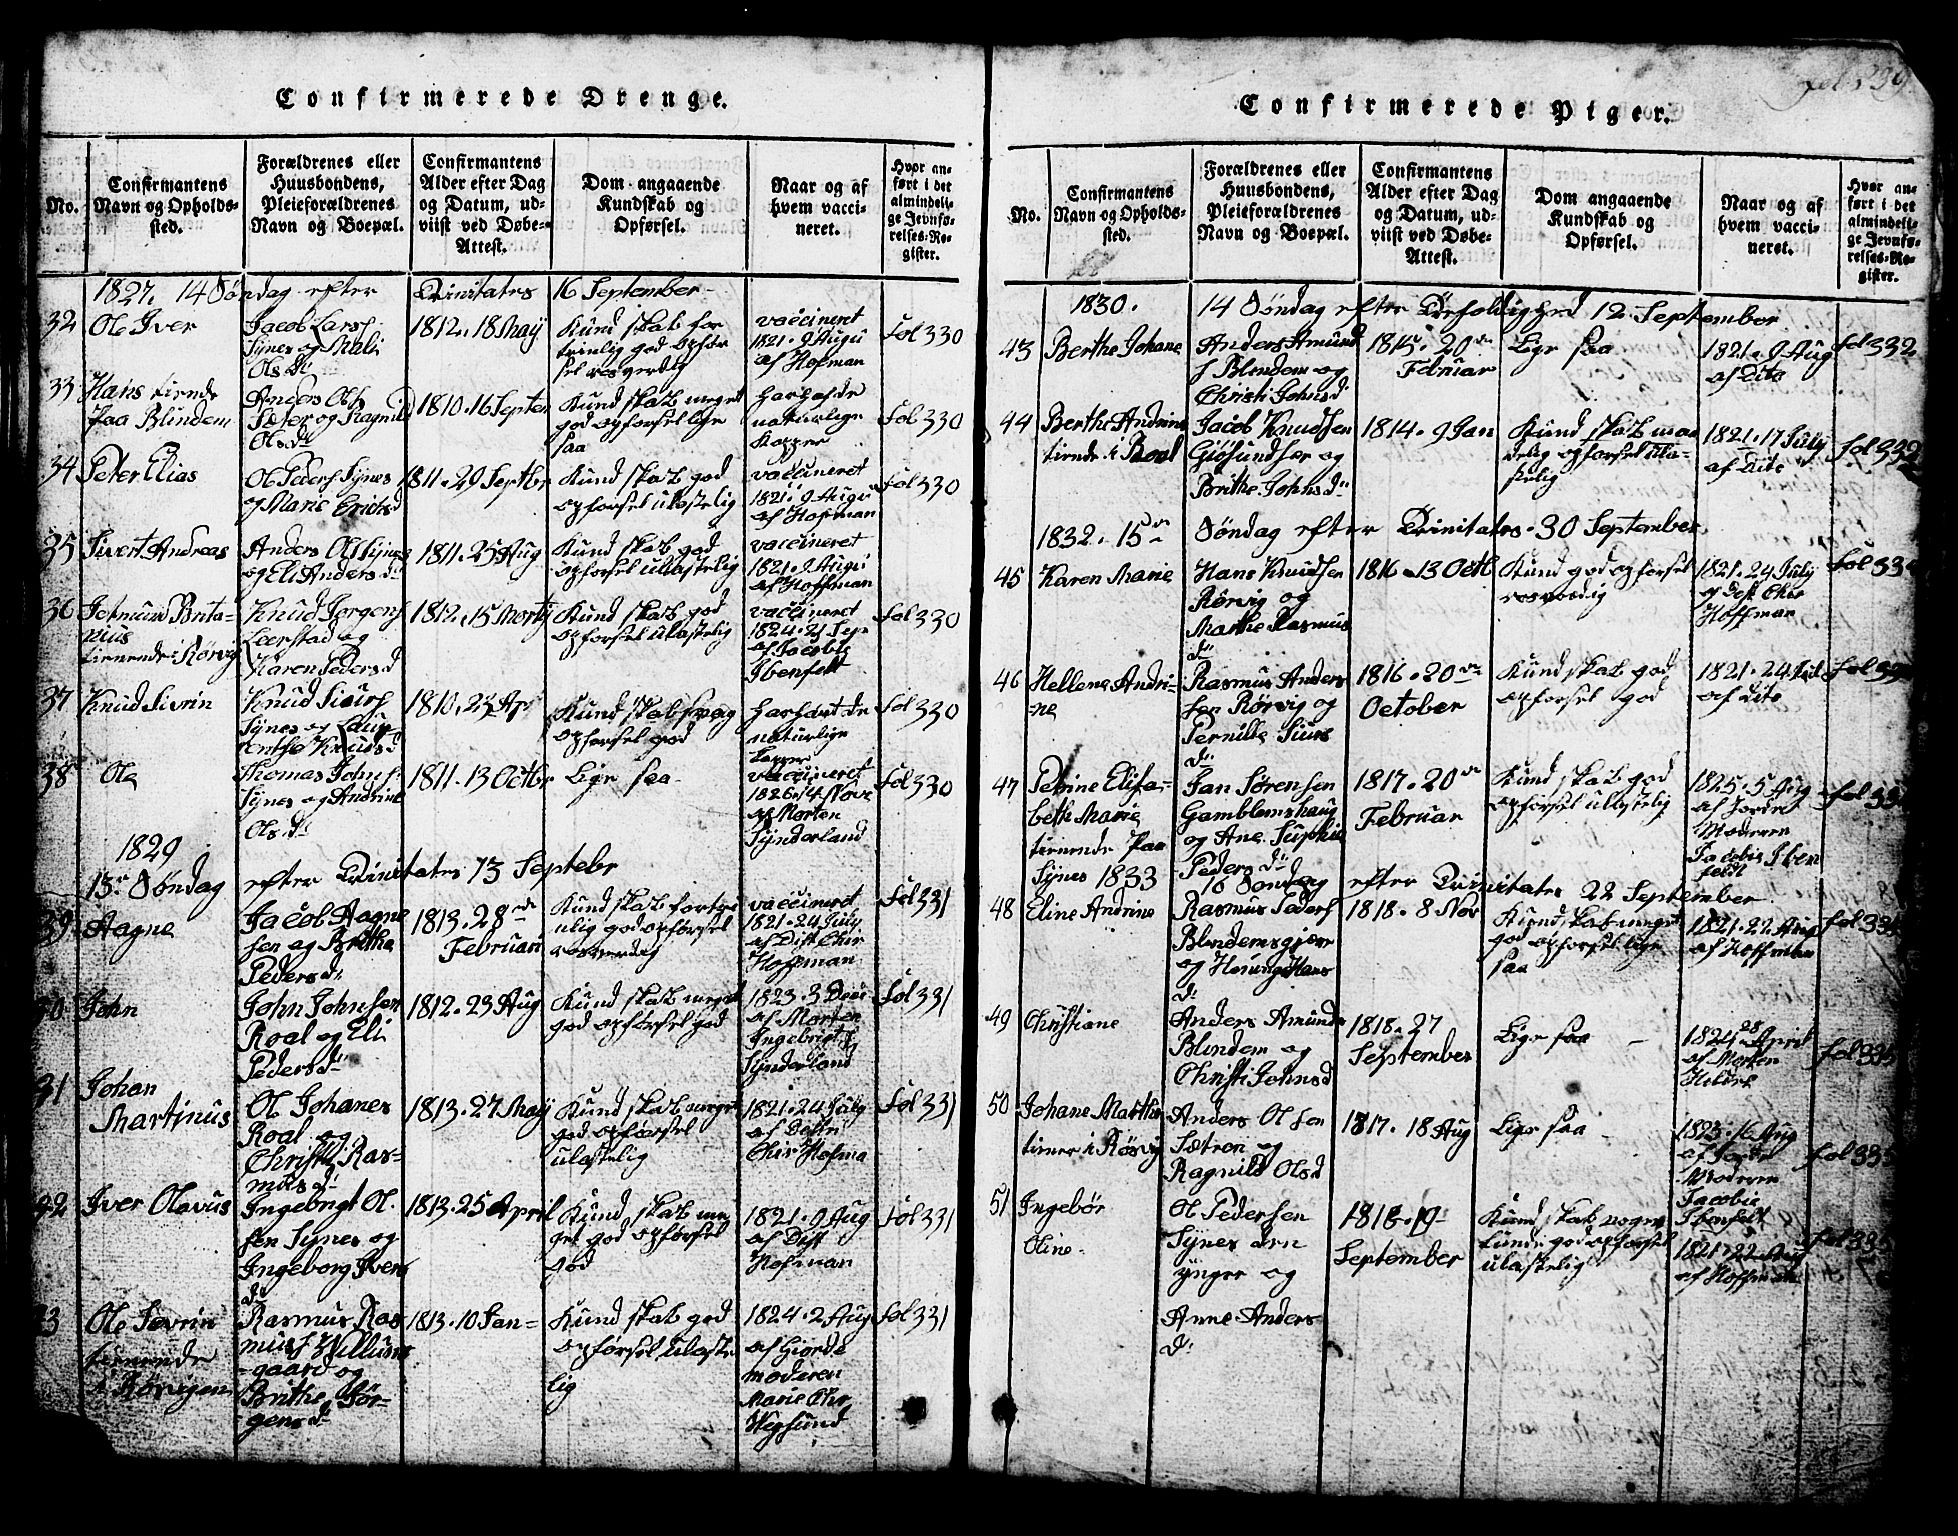 fol 329
Confirmerede Drenge.
No.
Confirmantens
Navn og Opholds-
sted.
Forældrenes eller
Huusbondens,
Pleieforældrenes
Navn og Boepæl.
Confirmantens
Alder efter Dag
og Datum, ud-
viist ved Døbe-
Attest.
Dom angaaende
Kundskab og
Opførsel.
Naar og af
hvem vacci-
neret.
Hvor an-
ført i det
almindeli-
ge Jevnfø-
relses-Re-
gister.
1827. 14 Søndag efter Trinitates 16 September
32
Ole Iver
Jacob Lars
Synes og Mali
Ols D
1812. 18 May
Kund skab for
trinlig god opfør
sel rosverdig
vaccinert
1821. 9 Augu
af Hofman
Fol 330
33
Hans tienende
Paa Blindem
Anders Ols
Sæter og Ragnild
Olsd
1810. 16 Septem
Kund skab meget
god opførsel lige
saa
har hafde
naturlige
Kopper
Fol 330
34
Peter Elias
Ole Peders Synes
og Marie Erichsd
1811. 29 Septbr
Kund skab god
opførsel ulastelig
vaccineret
1821. 9 Augu
af Hofman
Fol 330
35
Sivert Andreas
Anders Ols Synes
og Eli Anders d
1811. 25 Aug
Kund skab god
opførsel ulastelig
vaccineret
1821. 9 Augu
af Hoffman
36
Jetmund Brita-
nus
tienende i Rørvig
Knud Jørgens
Leerstad og
Karen Peders d
1812. 15 Mortz
Kund skab god
opførsel ulastelig
vaccineret
1824. 21 Sep
af Jacobi
Ibenfelt
Fol 330
37
Knud Sivrin
Knud Siurs
Synes og Laur
entse Knudsd
1810. 23 Ap
Kund skab svag
opførsel god
har havt de
naturlige
kopper
Fol 330
38
Ole
Thomas Johns
Synes og Andrine
Ols d
1811. 13 Octbr
Lige saa
vaccineret
1826. 4 Nove
af Morten
Synderland
Fol 330
1829
13 Søndag efter Trinitates 13 Septebr
39
Aagne
Jacob Aagne
sen og Britha
Peders d
1813. 28de
Februari
Kund skab fortri
nlig god opførsel
rosverdig
vaccineret
1821. 24 July
af Dist Chir
Hoffman
Fol 331
John
John Johnsen
Roal og Eli
Peders d
1812. 23 Aug
Kund skab meget
god opførsel god
1823. 3 Dec
af Morten
Ingebrigt
Synderland
Fol 331
Johan
Martinus
Ole Johanes
Roal og
Christi Ras-
mus d
1813. 27 May
Kund skab meget
god opførsel
ulastelig
1821. 24 July
af Distr
Chir Hofma
Fol 331
Iver Olavus
Ingebrigt Ol
sen Synes og
Ingeborg Ivers
d
1813. 25 April
Kund skab me
get god opførsel
god
1821. 9 Aug
af Dist
Hofman
Fol 331
Ole Severin
tienende
i Rørvigen
Rasmus Ras
mus Villums
gaard og
Brithe Jør-
gens d
1813. 10 Jan
Kund skab god
opførsel ulaste
lig
1824. 2 Aug
af Giorde
moderen
Marie Chr
Wegsund
Fol 331
Confirmerede Piger.
No.
Confirmantens
Navn og Opholds-
sted.
Forældrenes eller
Huusbondens,
Pleieforældrenes
Navn og Boepæl.
Confirmantens
Alder efter Dag
og Datum, ud-
viist ved Døbe-
Attest.
Dom angaaende
Kundskab og
Opførsel.
Naar og af
hvem vacci-
neret.
Hvor an-
ført i det
almindeli-
ge Jevnfø-
relses-Re-
gister.
1830. 14 Søndag efter Trefoldighed 12 September
43
Berthe Johane
Anders Amund
s Blindem og
Christi Johnsd
1815. 20de
Februar
Lige saa
1821. 9 Aug
af Dito
fol 332
44
Berthe Andrine
tienende i Roal
Jacob Knudsen
Giøsundsær og
Brithe Johns d
1814. 9 Jan
Kund skab maa
delig opførsel ula-
stelig
1821. 17 July
af Dito
fol 332
1832. 15de Søndag efter Trinitates 30 September
45
Karen Marie
Hans Knudsen
Rørvig og
Marthe Rasmus
d
1816. 13 Octb
Kund god opførsel
rosverdig
1821. 24 July
af Dist Chir
Hoffman
46
Hellene Andri-
ne
Rasmus Anders
sen Rørvig og
Pernille Siurs
d
1816. 20de
October
Kund skab god
opførsel god
1821. 24
af Dito
47
Petrine Elisa-
beth Marie
tienende Paa
Synes
Jan Sørensen
Gamblemshaug
og Ane Surphia
Peders d
1817. 20de
Februar
Kund skab god
opførsel ulastelig
1825. 5 Aug
af Jorde
Moderen
Jacobie Iben
feldt
1833 16 Søndag efter Trinitates 22 September
48
Eline Andrine
Rasmus Peders
Blindemsgjær
og Hans
d
1818. 8 Nov
Kund skab meget
god opførsel lige
saa
1821. 22 Aug
af Hoffman
fol 335
49
Christiane
Anders Amunds
Blindem og
Christi Johnsd
1818. 27
September
Lige saa
28 April
af Morten
Hildre
fol 335
50
Johane Marthe
tiener i Rørvig
Anders Olsen
Sætren og
Ragnild Olsd
1817. 18 Aug
Lige saa
1823. 16 Aug
af Jorde
Moderen
Jacobie
Ibenfelt
fol 335
51
Ingebør
Oline
Ole Pedersen
Synes den
ynger og
Anne Anders
d
1818. 19
September
Kund skab nogen
lunde god opførsel
ulastelig
1821. 22 Aug
af Hoffman
fol 335